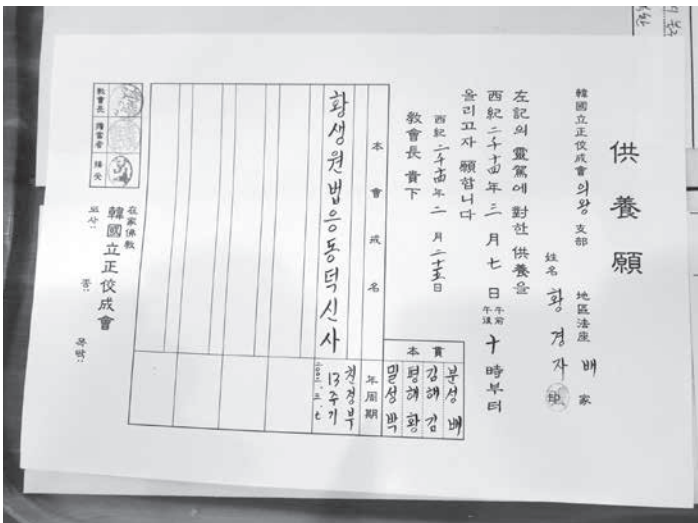 供養願
韓國立正佼成會 의왕 支部 地區法座 배 家
姓名 황경자 印
左記의 靈駕에 대한 供養을
西紀 二千十四年 三月 七日 午前 午後 十時부터
올리고자 願합니다
西紀 二千十四年 二月 二十五日
敎會長 貴下
本貫
분성 배
김해 김
평해 황
밀성 박
本會戒名
年周期
황생원법응동덕신사
친정부
13주기
敎會長
接受
在家佛敎
韓國立正佼成會
도사:
종:
목탁: